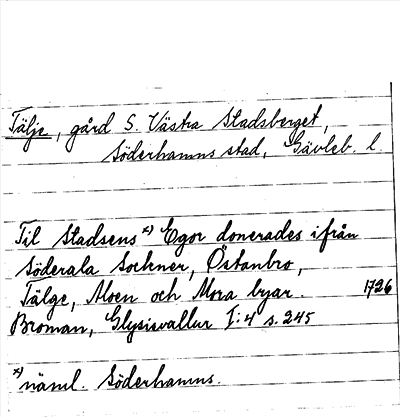 Tälje, gård S. Västra Stadsberget,
Söderhamns stad, Gävleb. l.
Til Stadsens x) Egor donerades ifrån
Söderala Sockner, Östanbro,
Tälge, Moen och Mora byar. 1726
Broman, Glysisvallur I:4 s. 245
x) näml. Söderhamns.